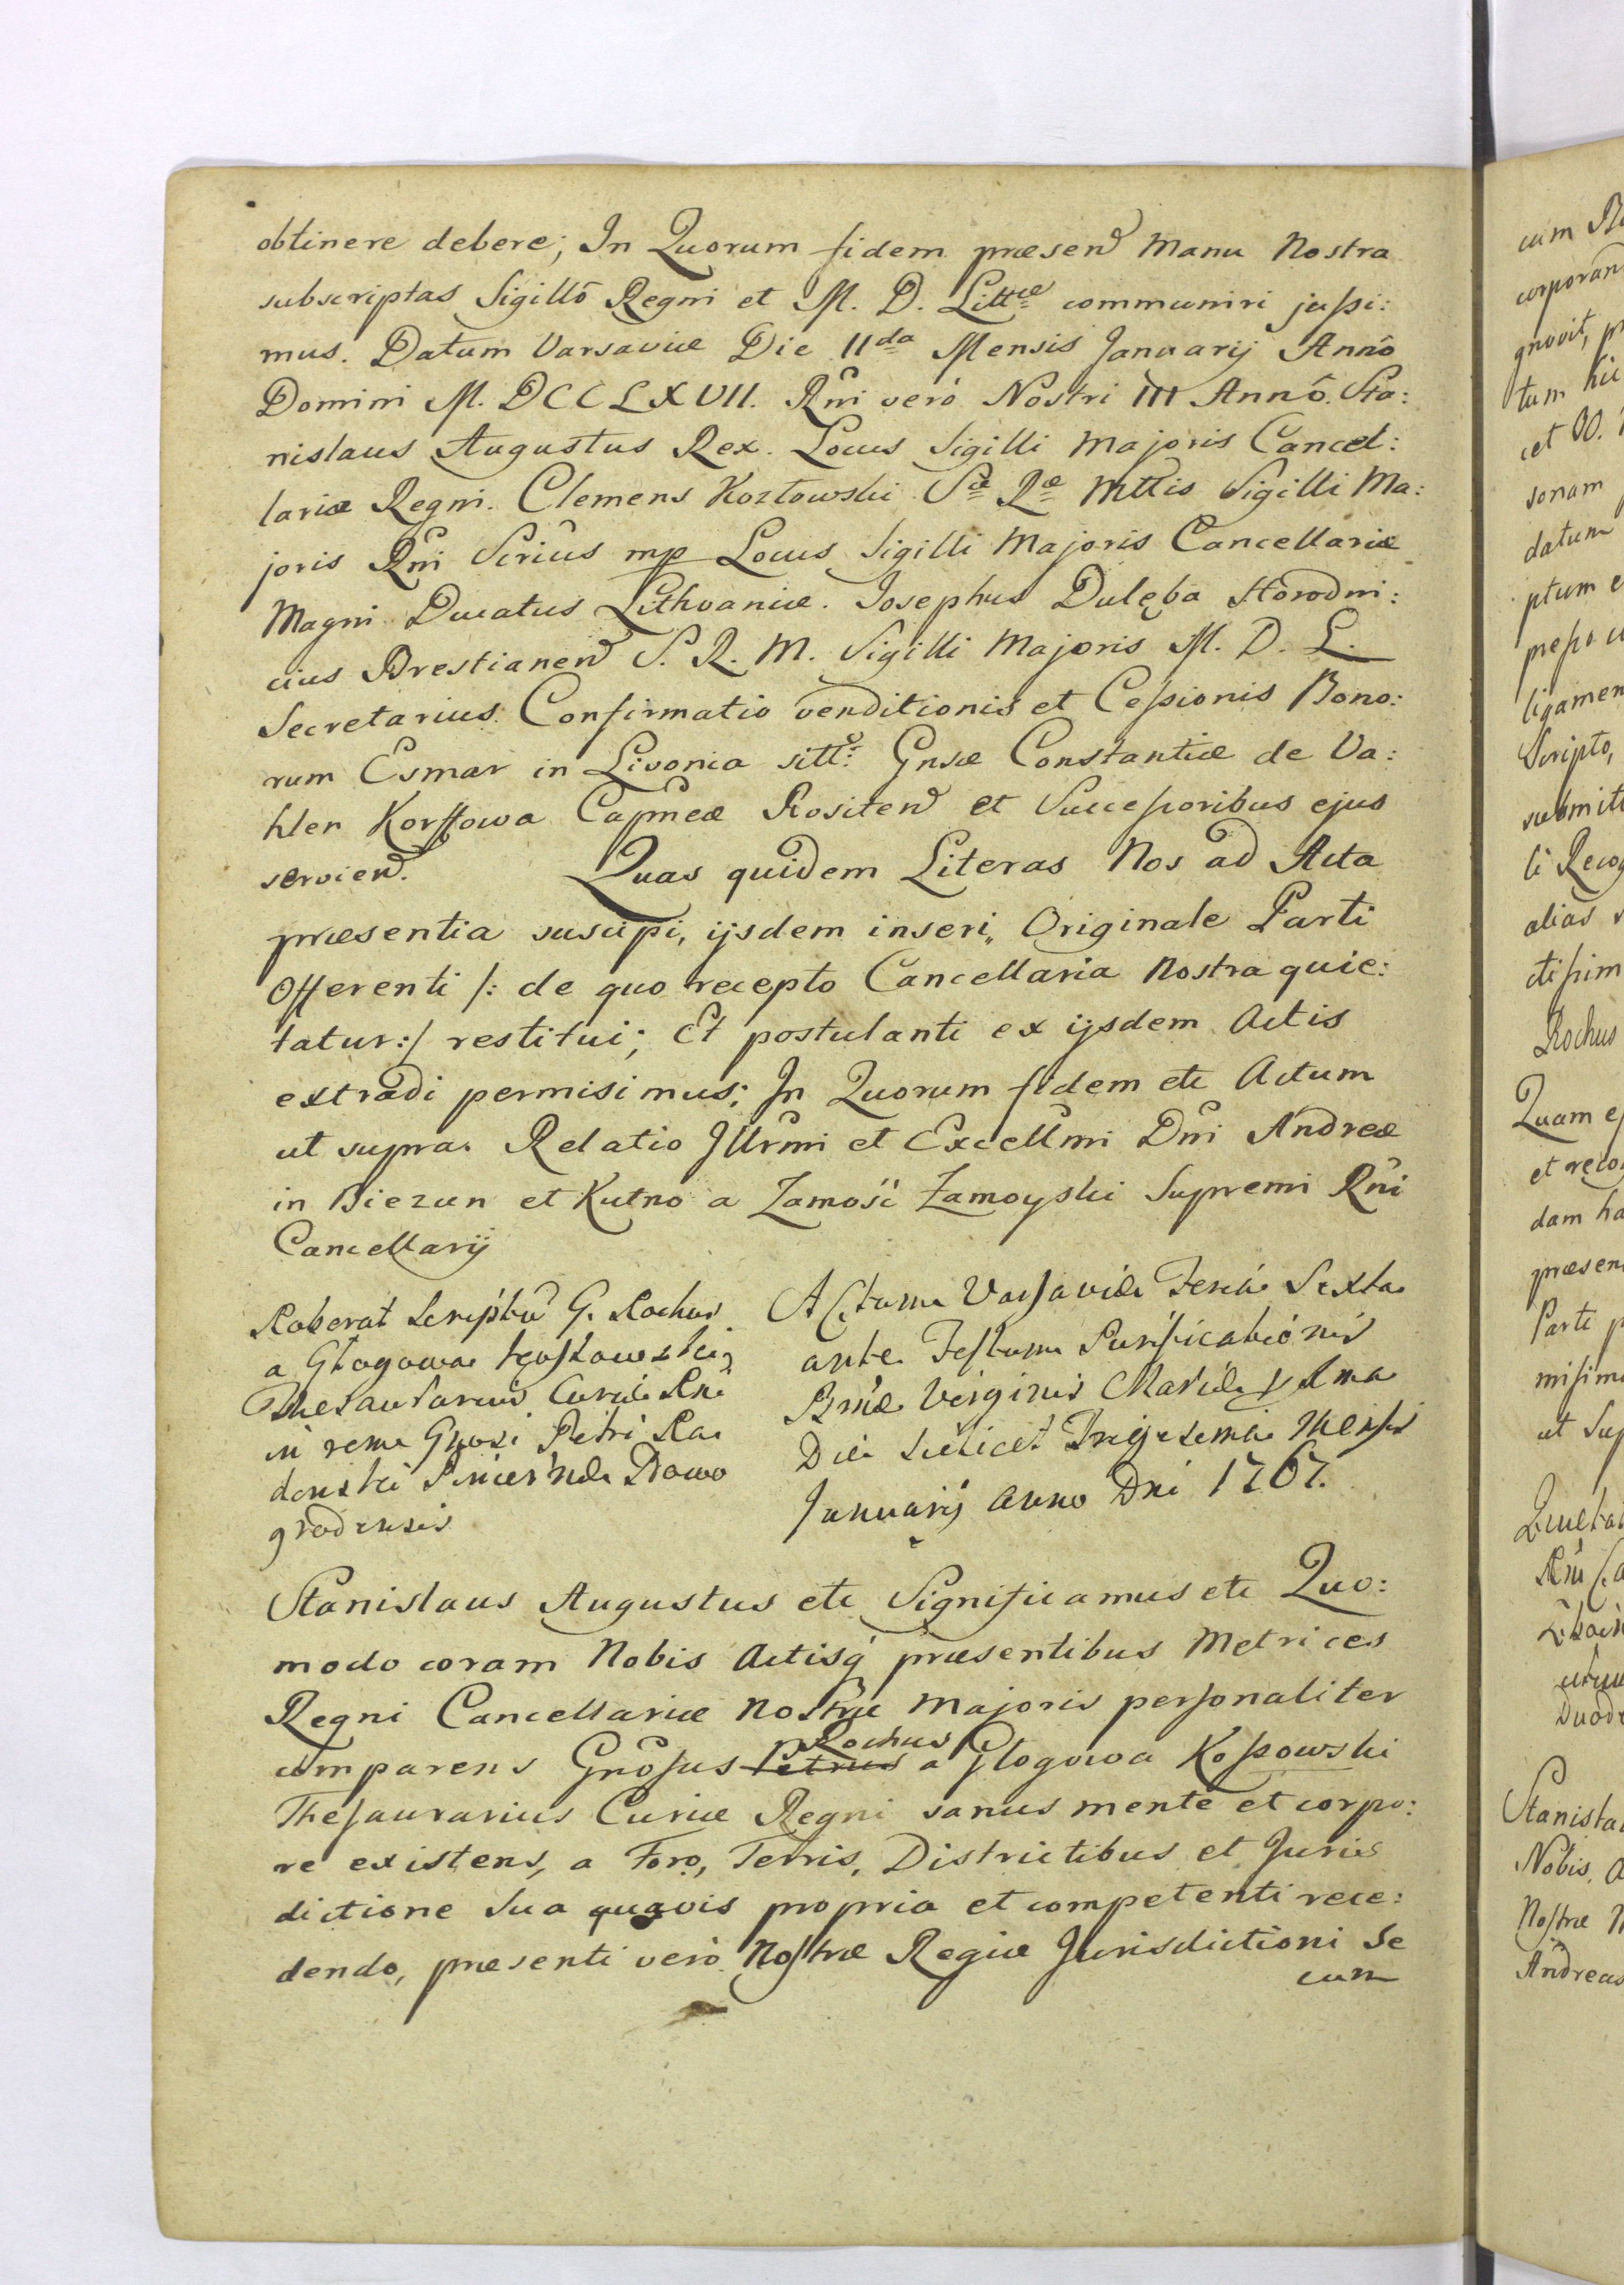 obtinere debere; In Quorum fidem præsen Manu Nostra
subscriptas Sigillō Regni et M. D. Littæ communiri jussi:
mus. Datum Varsaviæ Die 11da Mensis Januarij Annō
Domini M. DCCLXVII. Rni verò Nostri III Annō. Sta:
nislaus Augustus Rex. Locus Sigilli Majoris Cancel:
lariæ Regni. Clemens Kozłowski Sæ Ræ Mttis Sigilli Ma:
joris Rni Scrius mp Locus Sigilli Majoris Cancellariæ
Magni Ducatus Lithvaniæ. Josephus Dulęba Horodni:
cius Brestianen S. R. M. Sigilli Majoris M. D. L.
Secretarius. Confirmatio venditionis et Cessionis Bono:
rum Esmar in Livonia sitt: Gnsæ Constantiæ de Va:
hlen Korffowa Capneæ Rositen et Successoribus ejus
servien. Quas quidem Literas Nos ad Acta
præsentia suscipi, ijsdem inseri, Originale Parti
Offerenti /: de quo recepto Cancellaria Nostra quie:
tatur:/ restitui; Et postulanti ex ijsdem Actis
extradi permisimus; In Quorum fidem etc Actum
ut supra. Relatio Illrmi et Excellmi Dni Andreæ
in Biezun et Kutno a Zamość Zamoyski Supremi Rni
Cancellarij
Roborat Scriptū G. Rochus
a Głogowa Kossowski
Thesaurarius Curiæ Rni
in rem Gnosi Petri Ra
donski Pincernæ Nowo
grodensis
Actum Varsaviæ Feria Sexta
ante Festum Purificationis
Bmæ Virginis Mariæ
Die scilicet Trigesima Mensis
Januarij Anno Dni 1767.
Stanislaus Augustus etc Significamus etc Quo:
modo coram Nobis Actisq præsentibus Metrices
Regni Cancellariæ Nostræ Majoris personaliter
comparens Gnosus Petrus Rochus a Głogowa Kossowski
Thesaurarius Curiæ Regni sanus mente et corpo:
re existens, a Foro, Terris, Districtibus et Juris
dictione Sua quavis propria et competenti rece:
dendo, præsenti verò Nostræ Regiæ Jurisdictioni Se
cum
cum
corporan
gnovit,
tum hic
cet
sonam
datum
ptum
presso
ligamen
Scripto,
submit
li Recog
alias
ctissim
Rochus
Quam
et reco
dam ha
præsen
Parti
misimu
ut Sup
Stanisla
Nobis
Nostræ
Andreas